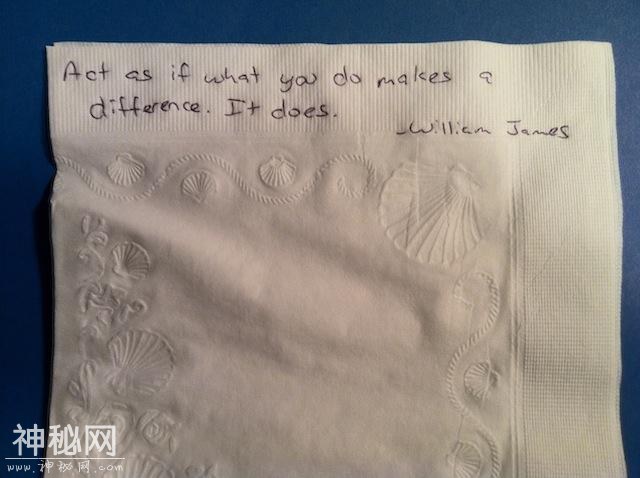 Act as if what you do makes a
difference. It does.
-William James
神秘网
www.神秘网.com